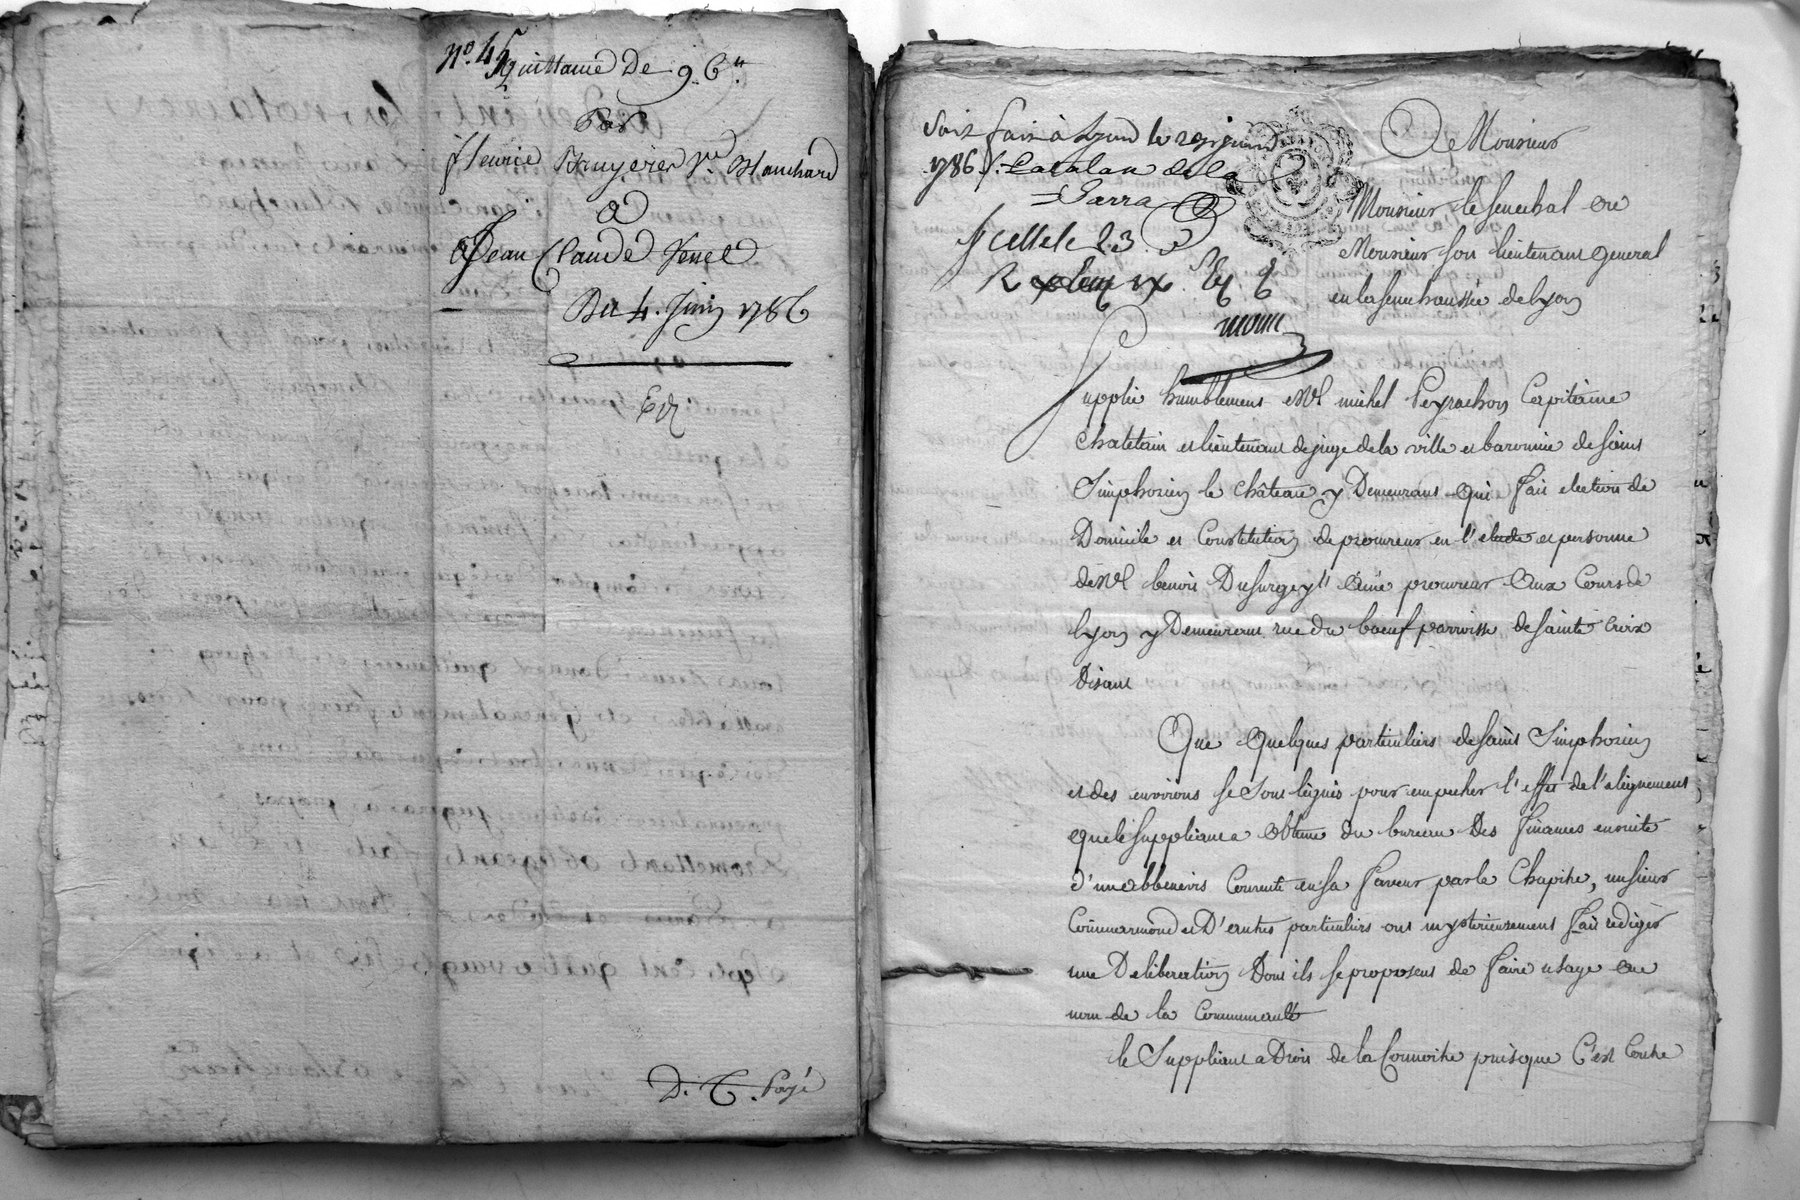 N°. 45
Quittance De 96ᵗᵗ
Par
fleurie Bruyeres Vᵉ. Blanchard
a
Jean Claude Venel
Du 4. Juin 1786
Exp
D. C. Payé
Soit fait à Lyon le 29 juin
1786 /. Catalan de la
Sarra
Scellé le 23
A Monsieur
Monsieur le Senechal ou
Monsieur son lieutenant general
en la senechaussée de Lyon
Supplie humblement Mᵉ michel Peyrachon Capitaine
Chatelain et lieutenant de juge de la ville et baronnie de saint
Simphorien le château y Demeurant qui fait election de
Domicile et Constitution de procureur en l'etude et personne
de Mᵉ benoit Dusurgey l'ainé procureur aux Cours de
Lyon y Demeurant rue du boeuf parroisse de sainte Croix
Disant
Que quelques particuliers de saint Simphorien
et des environs se sont ligués pour empecher l'effet de l'alignement
que le suppliant a obtenu du bureau Des finances ensuite
d'un abbenevis Consenti en sa faveur par le Chapitre, un sieur
Commarmond et D'autres particuliers ont mysterieusement fait rediger
une Deliberation Dont ils se proposent de faire usage au
nom de la Communauté
le Suppliant a Droit de la Connoitre puisque C'est Contre